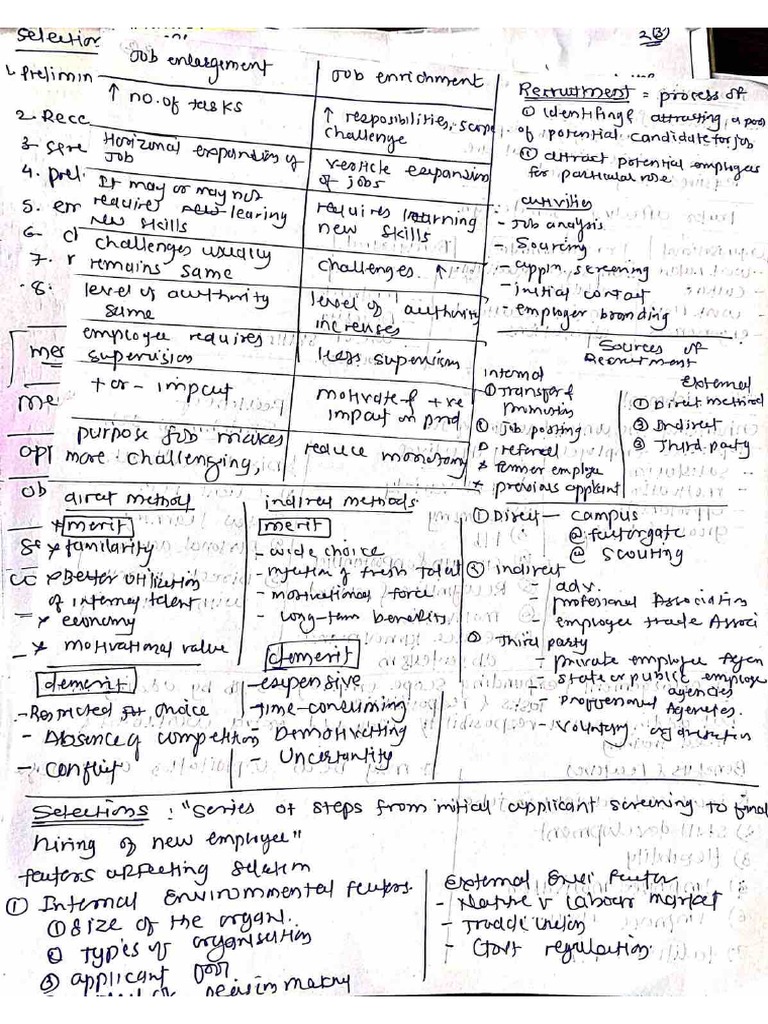 2(B)
Selection
1. Prelimin
2. Rece
3. Scre
4. prel
5. em
6. c
7. r
8.
me
me
opt
ob
Job enlargement | Job enrichment
↑ no. of tasks | ↑ resposibilities, scope challenge
Horizonal expansion of Job | verticle expansion of jobs
It may or may not requires new learing new skills | requires learning new skills
challenges usually remains same | challenges ↑
level of authority same | level of authority increases
employee requires supervision | less supervision
+ or - impact | motivate & +ve impact on prd
purpose job makes more challenging, | reduce monotony
Recruitment = process of
① identifing attracting a pool
of potential candidate for job
② attract potential employees
for particular role
activities
- Job analysis
- Sourcing
- Appln. screening
- initial contact
- employer branding
Sources of
Recruitment
internal
① Transfer &
promotion
② Job posting
referal
* former employe
* previous applicant
External
① Direct method
② Indirect
③ Third party
direct method
* merit
* familarity
* Better utilization
of internal talent
* economy
* motivational value
demerit
- Restricted choice
- Absence of competition
- conflict
indirect methods
merit
- wide choice
- injection of fresh
- motivational force
- long-term benefits
demerit
- expensive
- time-consuming
- Demotivating
- Uncertantity
① Direct — campus
@ factorgate
@ scouting
② indirect
- adv.
- profesional Association
- employee trade Associ
③ Third party
- private employee Agen
- state or public employe
agencies
- proffesional
Agencies.
- voluntary organisation
Selections : "Series of steps from initial applicant screening to final
hiring of new employee"
factors affecting Selection
① Internal Environmental factors.
① Size of the organi.
② Types of organisation
③ applicant pool
External Envi factor
- Native of Labour market
- Trade Union
- Govt regulation.